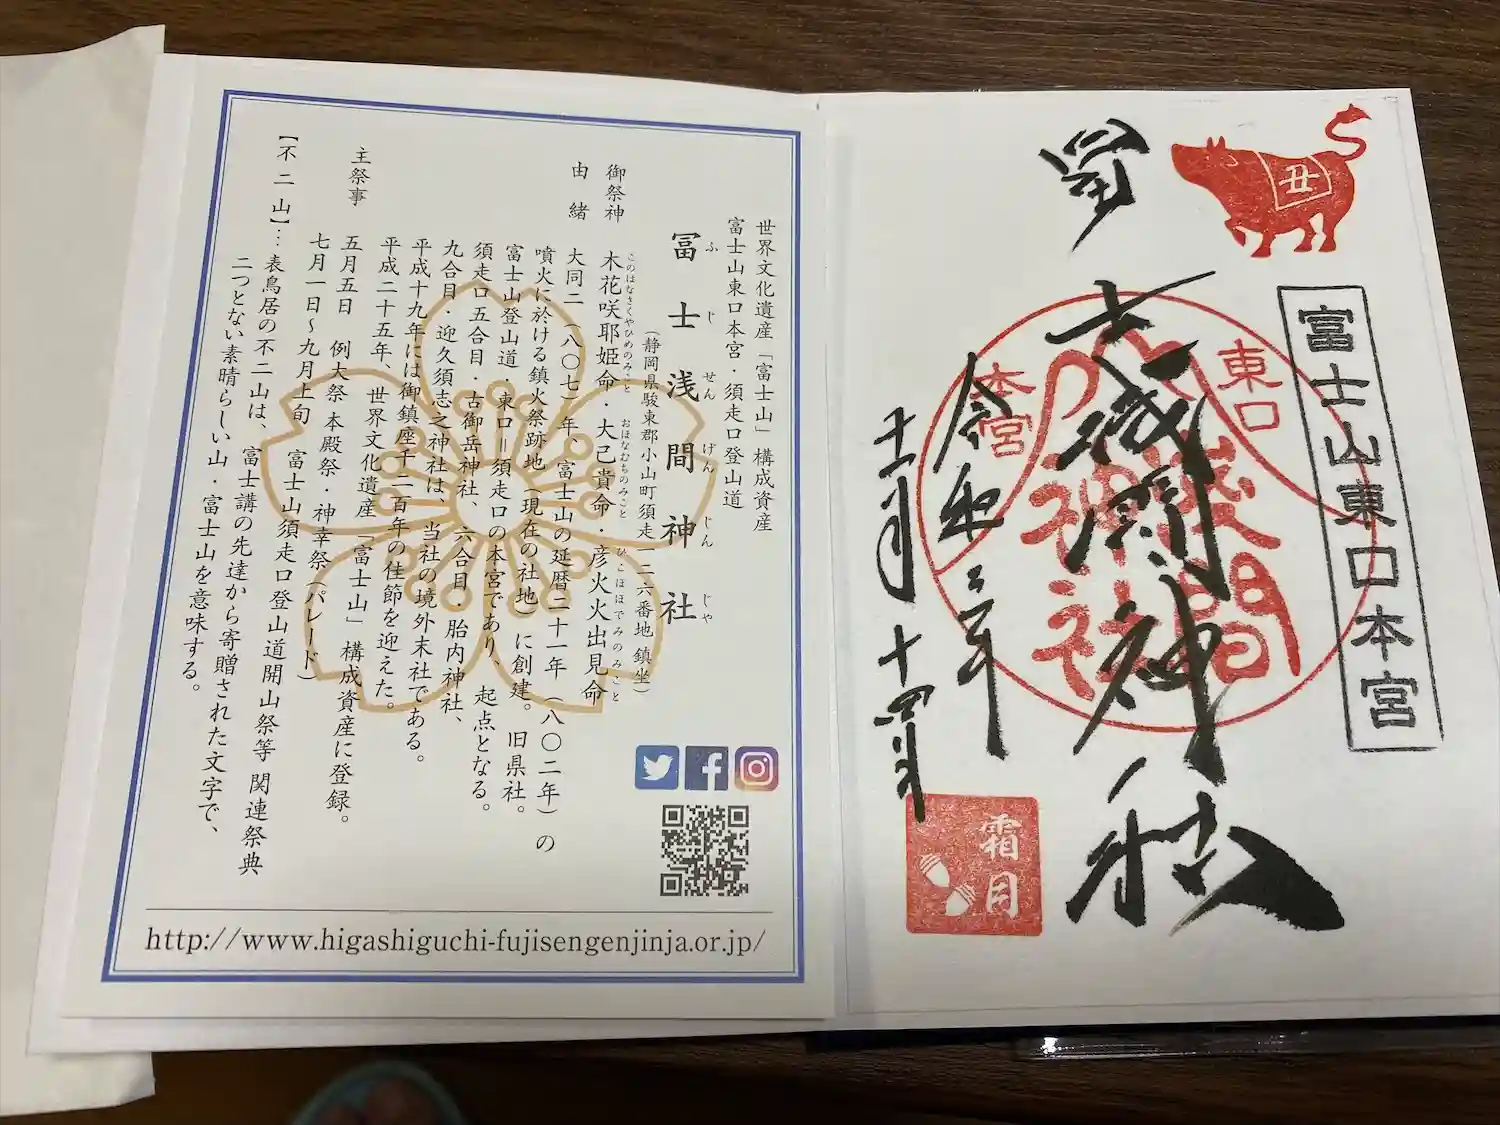 世界文化遺産「富士山」構成資産
富士山東口本宮・須走口登山道
冨士浅間神社
ふじせんげんじんじゃ
(静岡県駿東郡小山町須走一二六番地 鎮坐)
御祭神 木花咲耶姫命・大己貴命・彦火火出見命
このはなさくやひめのみこと おほなむちのみこと ひこほほでみのみこと
由緒 大同二(八〇七)年 富士山の延暦二十一年(八〇二年)の
噴火に於ける鎮火祭跡地(現在の社地)に創建。旧県社。
富士山登山道・東口=須走口の本宮であり、起点となる。
須走口五合目・古御岳神社、六合目・胎内神社、
九合目・迎久須志之神社は、当社の境外末社である。
平成十九年には御鎮座千二百年の佳節を迎えた。
平成二十五年、世界文化遺産「富士山」構成資産に登録。
主祭事 五月五日 例大祭 本殿祭・神幸祭(パレード)
七月一日〜九月上旬 富士山須走口登山道開山祭等 関連祭典
【不二山】…表鳥居の不二山は、富士講の先達から寄贈された文字で、
二つとない素晴らしい山・富士山を意味する。
http://www.higashiguchi-fujisengenjinja.or.jp/
丑
富士山東口本宮
東口
本宮
淺間
神社
冨士浅間神社
令和三年
十一月十四日
霜月